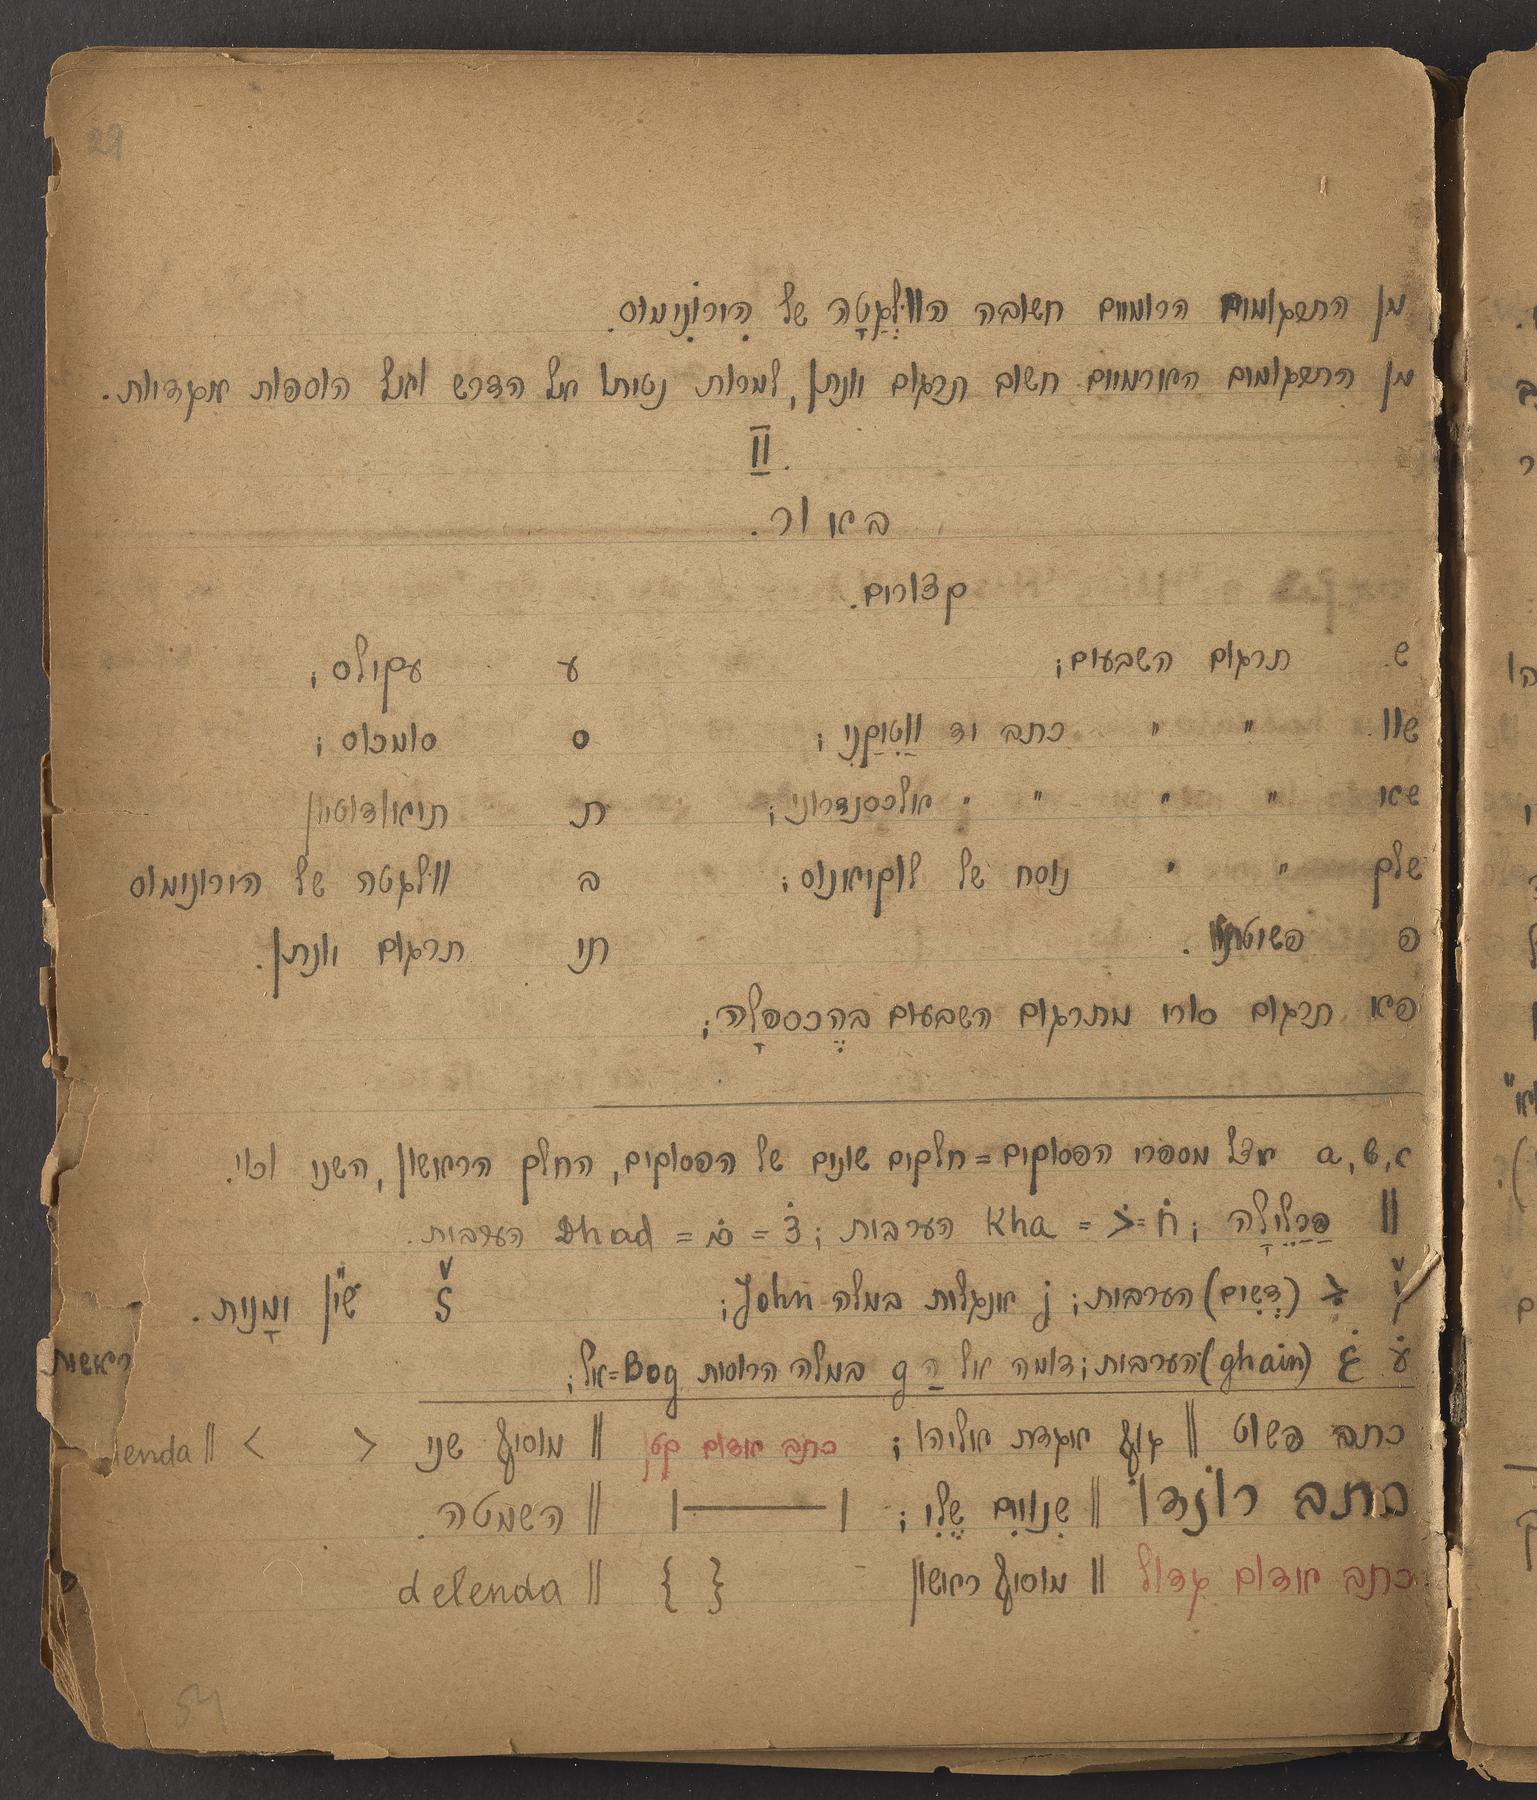 29
מן התרגומים הרומיים חשובה הווּלְגַטָה של הִירוֹנִימוס.
מן התרגומים הארמיים חשוב תרגום יונתן, למרות נטיתו אל הדרש ואל הוספות אגדיות.
II.
באור.
קצורים.
ש. תרגום השבעים; ע עקילס;
שוו " " כתב יד וַטִיקַנִי; ס סומכוס;
שא " " " " אלכסנדרוני; ת תיאודוטיון
שלק " " נוסח של לוקיאנוס; ב וולגטה של הירונימוס
פ פשיטתא. תי תרגום יונתן.
פא תרגום סורי מתרגום השבעים בהֶכספלָה;
a, ש, א אצל מספרי הפסוקים = חלקים שונים של הפסוקים, החלק הראשון, השני וכו'.
|| פַרַלֶילָה; Kha = הערבית; צׄ = ض = Dhad הערבית.
(דְשִים) הערבית; j אנגלית במלה John; שׁין ומָנית.
עׄ غ (ghain) הערבית; דומה אל הg במלה הרוסית Bog=אל; ראשית
כתב פשוט || גוף אגדת אליהו; כתב אדום קטן || מוסיף שני < > || lenda
כתב רוֹנדוֹ || שִנוּיִים שֶלִי; |——| || השמטה.
כתב אדום גדול || מוסיף ראשון { } || delenda
54